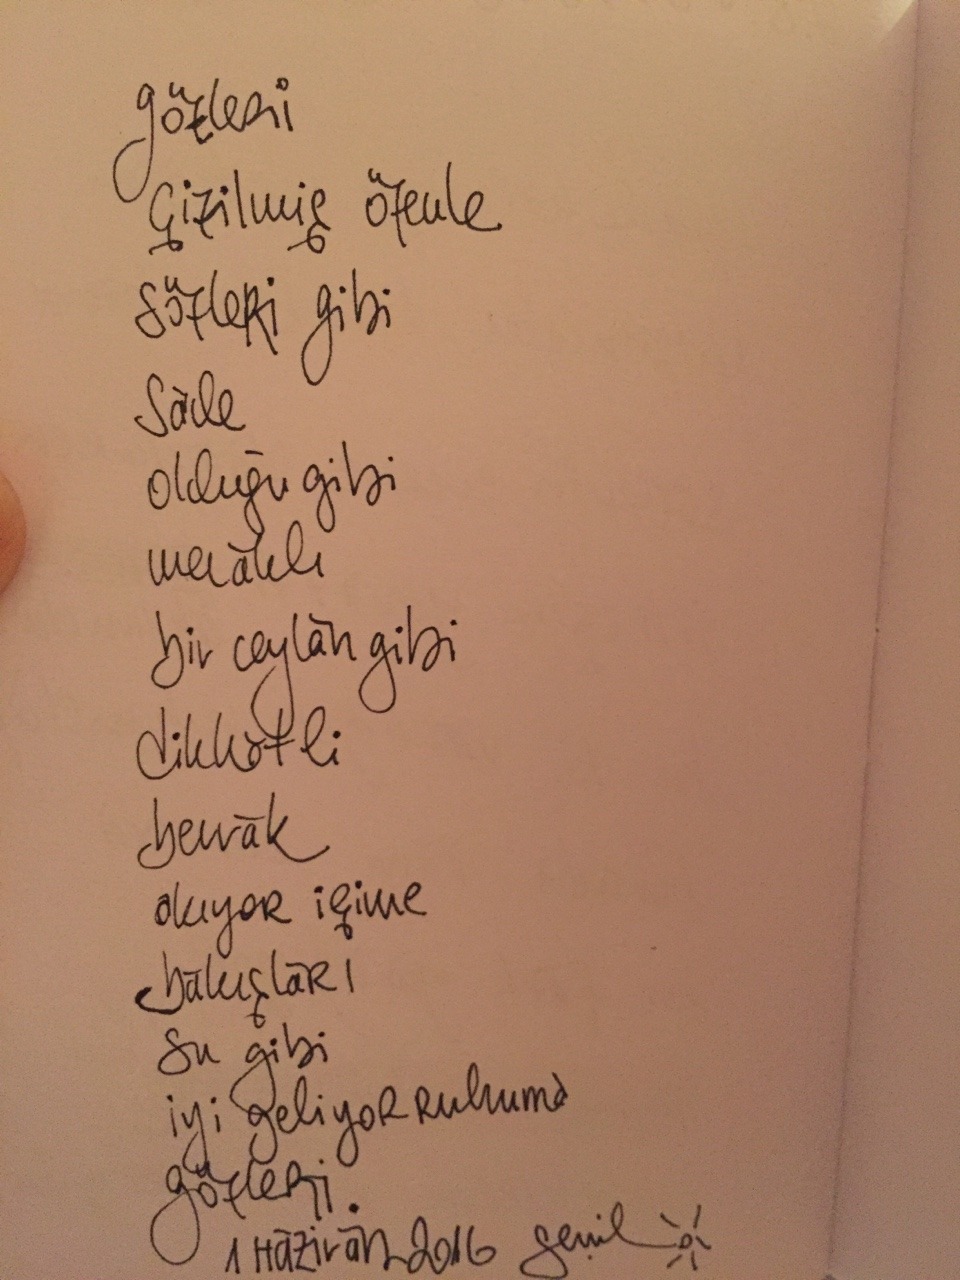 gözleri
çizilmiş özenle
sözleri gibi
sāde
olduğu gibi
merāklı
bir ceylān gibi
dikkatli
berrāk
akıyor içime
bākışlārı
su gibi
iyi geliyor ruhuma
gözleri.
1 Hāzirān 2016 Şenil